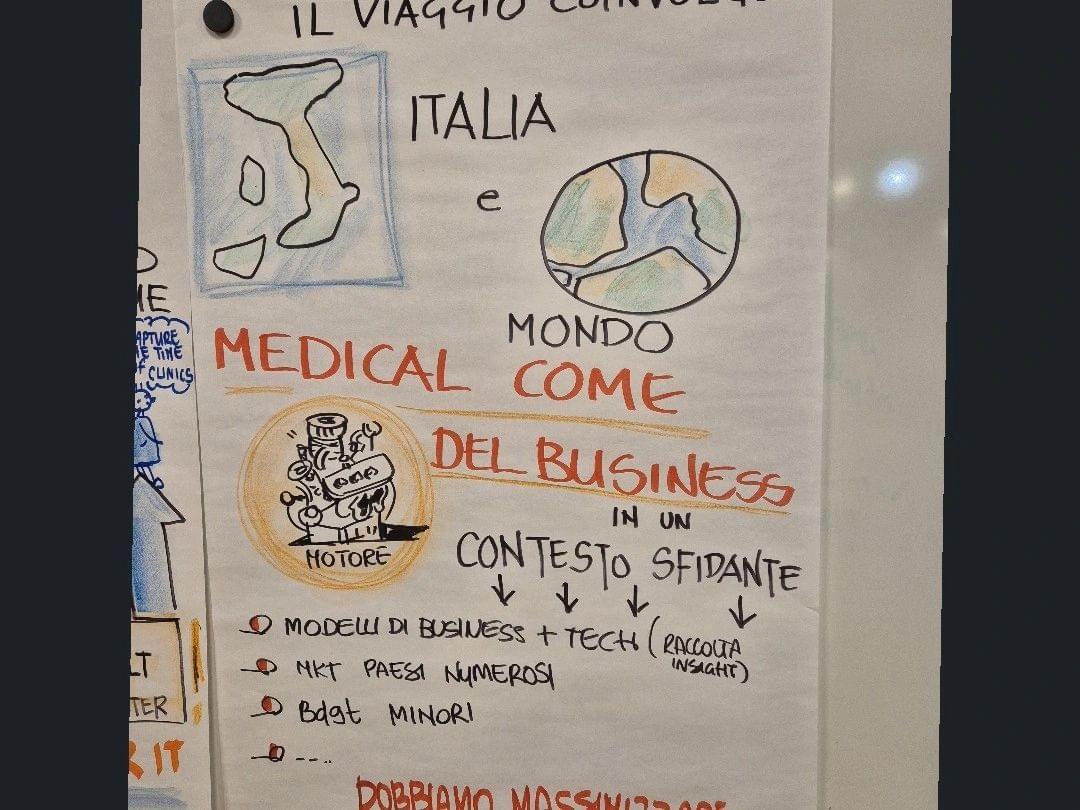 IL VIAGGIO
ITALIA
e
MONDO
MEDICAL COME
MOTORE
DEL BUSINESS
IN UN
CONTESTO SFIDANTE
MODELLI DI BUSINESS + TECH (RACCOLTA
INSIGHT)
MKT PAESI NUMEROSI
Bdgt MINORI
----
DOBBIAMO MASSIMIZZARE
APTURE
E TIME
of CLINICS
LT
TER
R IT